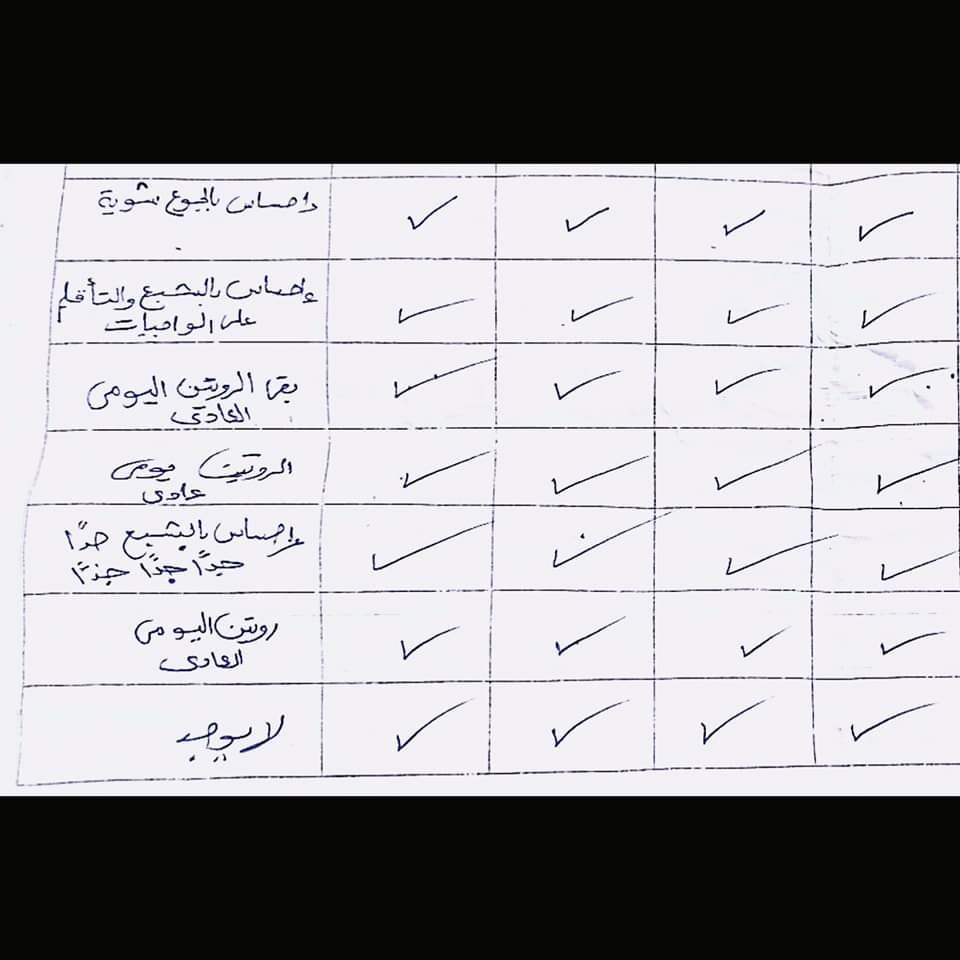 إحساس بالجوع شوية
إحساس بالشبع والتأقلم
على الواجبات
بقا الروتين اليومى
العادى
الروتين يومى
عادى
إحساس بالشبع جدًا
جدًا جدًا جدًا
روتين اليومى
العادى
لا يوجد